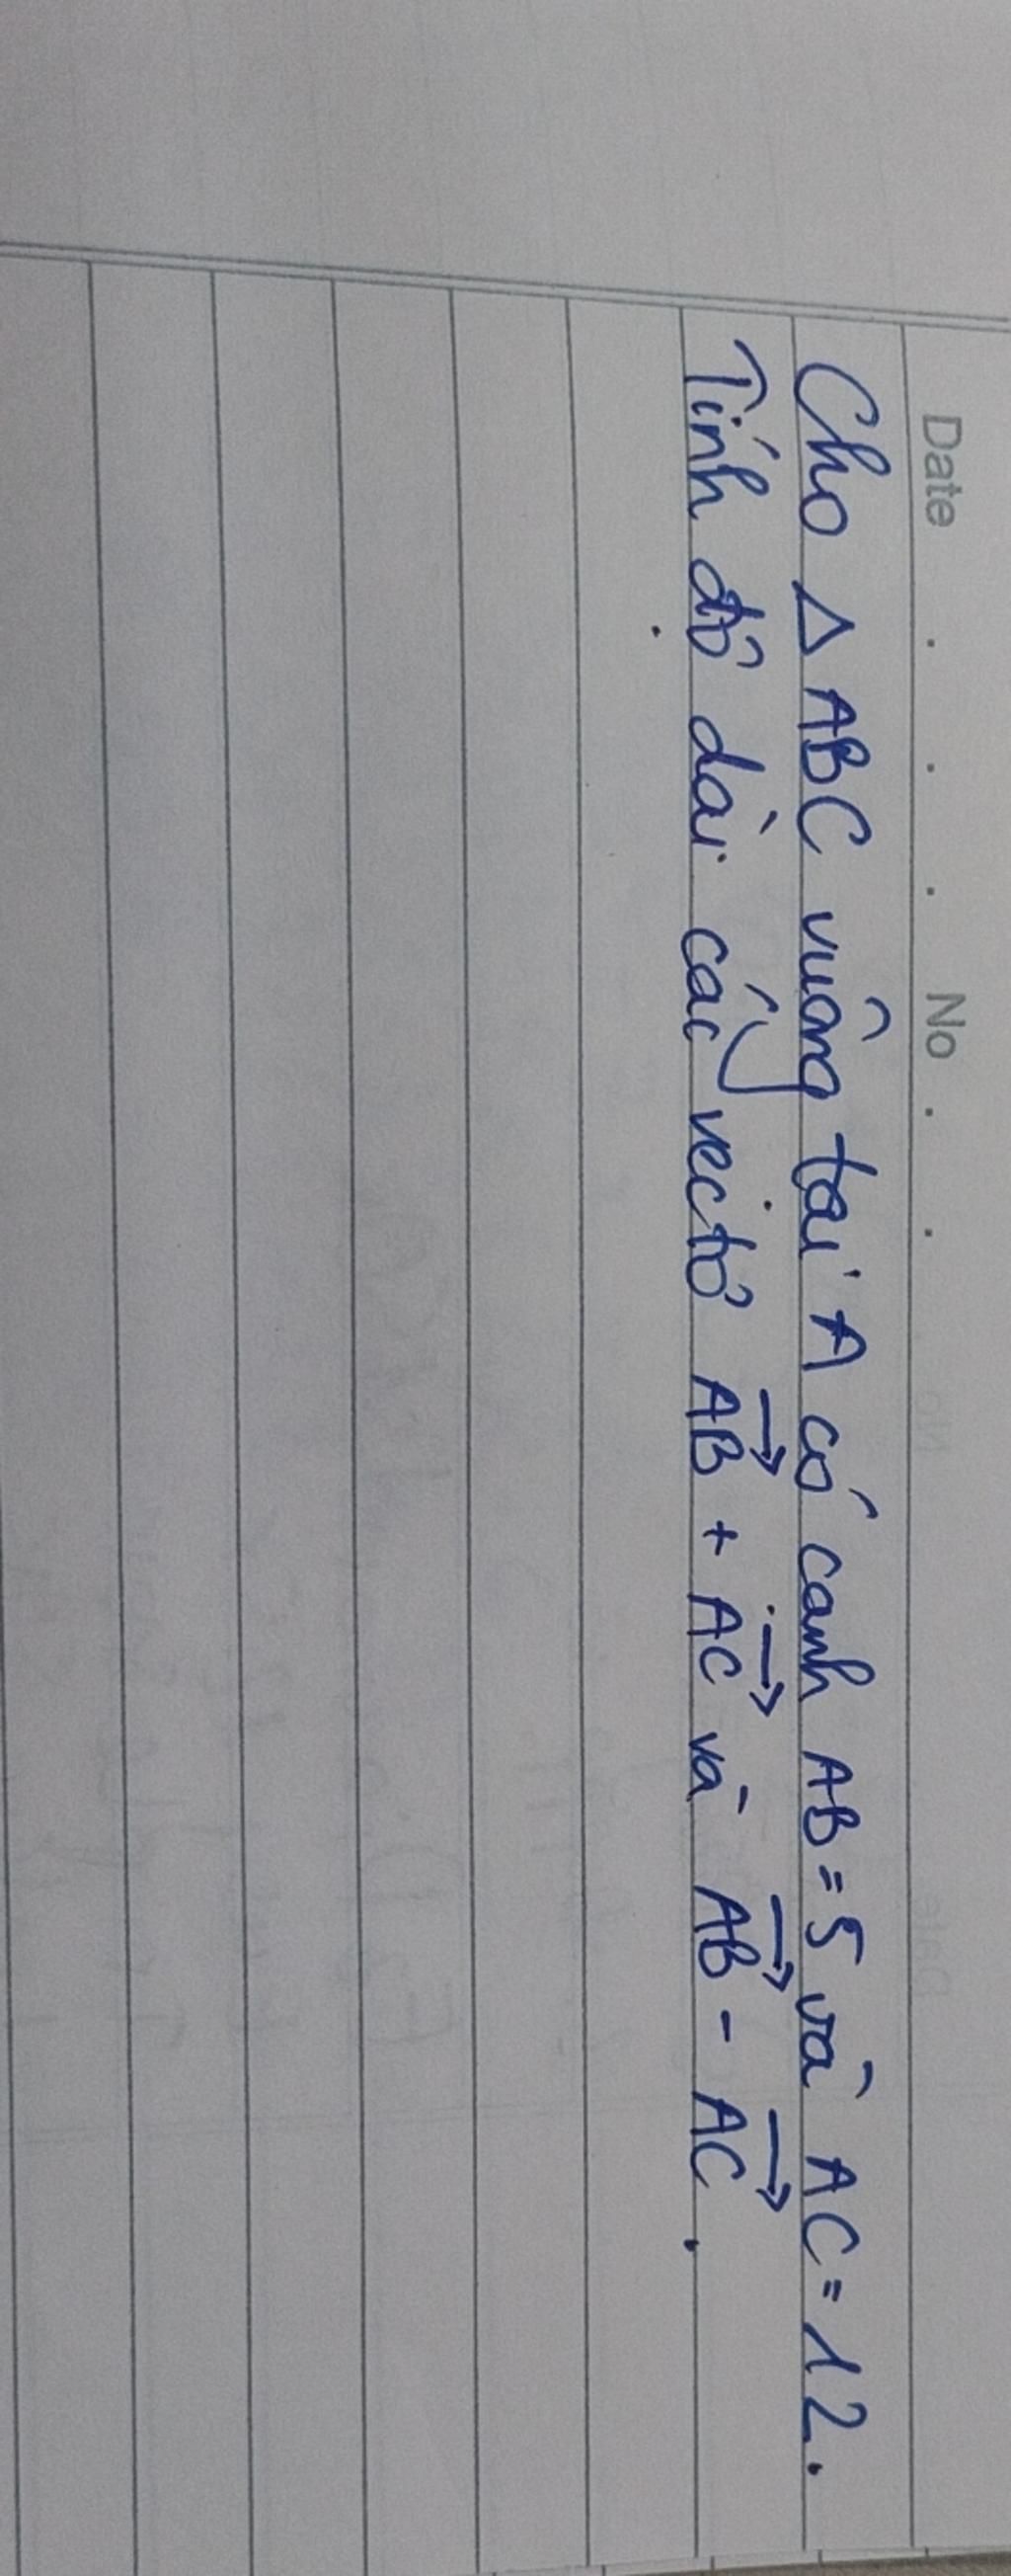 Date . . . No . .
Cho △ ABC vuông tại A có cạnh AB = 5 và AC = 12.
Tính độ dài các vectơ $\overrightarrow{AB}$ + $\overrightarrow{AC}$ và $\overrightarrow{AB}$ - $\overrightarrow{AC}$.